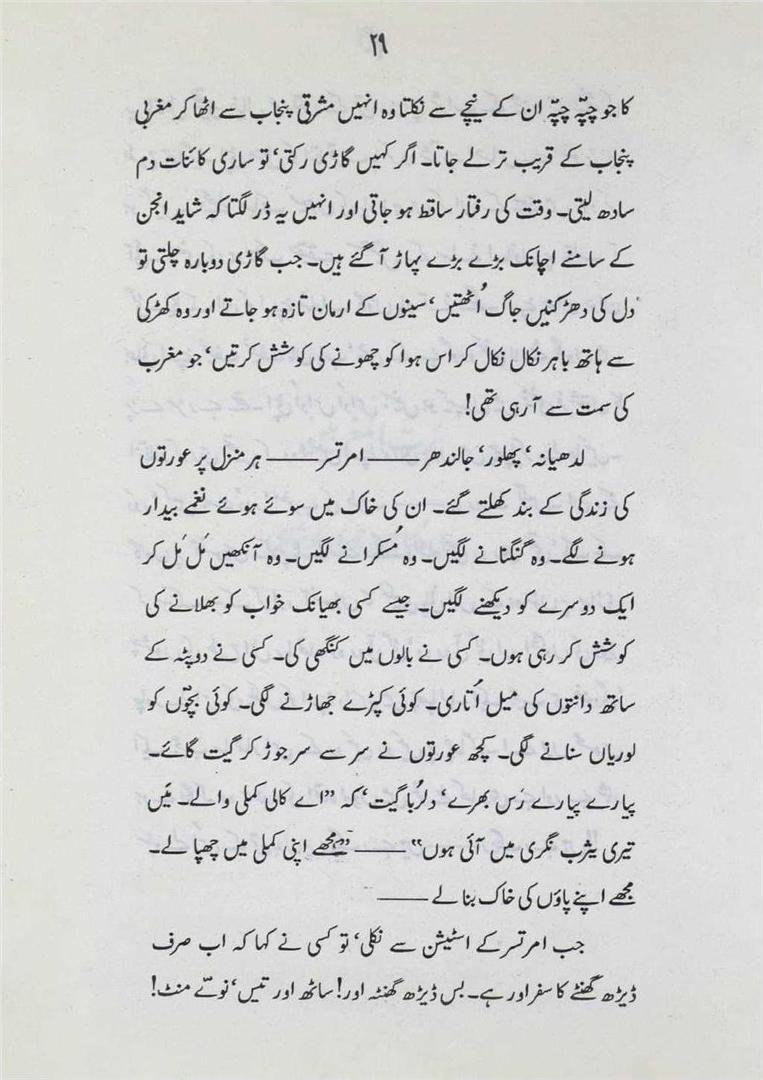 ۲۹
کا جو چپّہ چپّہ ان کے نیچے سے نکلتا وہ انہیں مشرقی پنجاب سے اٹھا کر مغربی
پنجاب کے قریب تر لے جاتا۔ اگر کہیں گاڑی رکتی، تو ساری کائنات دم
سادھ لیتی۔ وقت کی رفتار ساقط ہو جاتی اور انہیں یہ ڈر لگتا کہ شاید انجن
کے سامنے اچانک بڑے بڑے پہاڑ آ گئے ہیں۔ جب گاڑی دوبارہ چلتی تو
دل کی دھڑکنیں جاگ اُٹھتیں، سینوں کے ارمان تازہ ہو جاتے اور وہ کھڑکی
سے ہاتھ باہر نکال نکال کر اس ہوا کو چھونے کی کوشش کرتیں، جو مغرب
کی سمت سے آ رہی تھی!
لدھیانہ، پھلور، جالندھر —— امرتسر —— ہر منزل پر عورتوں
کی زندگی کے بند کھلتے گئے۔ ان کی خاک میں سوئے ہوئے نغمے بیدار
ہونے لگے۔ وہ گنگنانے لگیں۔ وہ مُسکرانے لگیں۔ وہ آنکھیں مَل مَل کر
ایک دوسرے کو دیکھنے لگیں۔ جیسے کسی بھیانک خواب کو بھلانے کی
کوشش کر رہی ہوں۔ کسی نے بالوں میں کنگھی کی۔ کسی نے دوپٹہ کے
ساتھ دانتوں کی میل اُتاری۔ کوئی کپڑے جھاڑنے لگی۔ کوئی بچّوں کو
لوریاں سنانے لگی۔ کچھ عورتوں نے سر سے سر جوڑ کر گیت گائے۔
پیارے پیارے رَس بھرے، دلرُبا گیت، کہ ”اے کالی کملی والے۔ مَیں
تیری یثرب نگری میں آئی ہوں“ —— ”مجھے اپنی کملی میں چھپا لے۔
مجھے اپنے پاؤں کی خاک بنا لے ——
جب امرتسر کے اسٹیشن سے نکلی، تو کسی نے کہا کہ اب صرف
ڈیڑھ گھنٹے کا سفر اور ہے۔ بس ڈیڑھ گھنٹہ اور! ساٹھ اور تیس، نوّے منٹ!